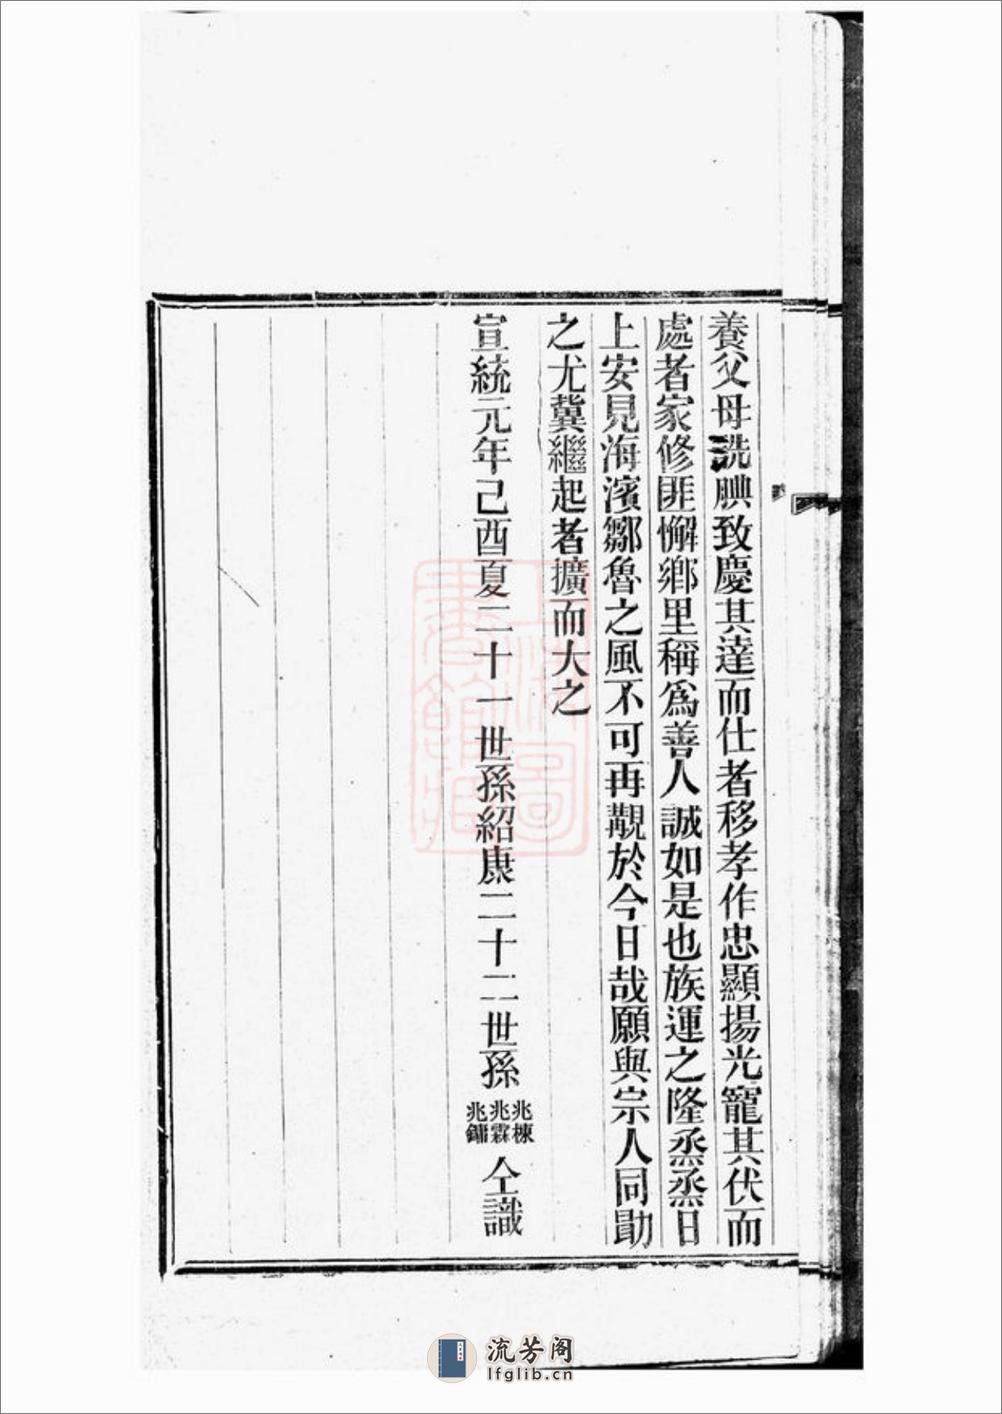 養父母洗腆致慶其達而仕者移孝作忠顯揚光寵其伏而
處者家修匪懈鄉里稱為善人誠如是也族運之隆烝烝日
上安見海濱鄒魯之風不可再覯於今日哉願與宗人同勖
之尤冀繼起者擴而大之
宣統元年己酉夏二十一世孫紹康二十二世孫兆棟兆霖兆鏞仝識
上海圖書館藏
流芳阁
lfglib.cn